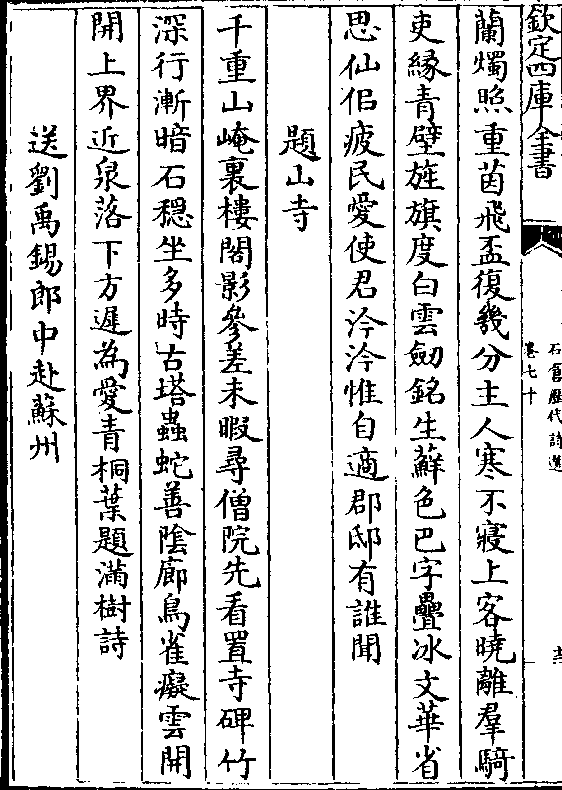 欽定四庫全書
石倉歷代詩選
卷七十
蘭燭照重茵飛盃復幾分主人寒不寢上客曉離羣騎
吏緣青壁旌旗度白雲劒銘生蘚色巴字疊冰文華省
思仙侣疲民愛使君泠泠惟自適郡邸有誰聞
題山寺
千重山崦裏樓閣影參差未暇尋僧院先看置寺碑竹
深行漸暗石穩坐多時古塔蟲蛇善陰廊鳥雀癡雲開
開上界近泉落下方遲為愛青桐葉題滿樹詩
送劉禹錫郎中赴蘇州